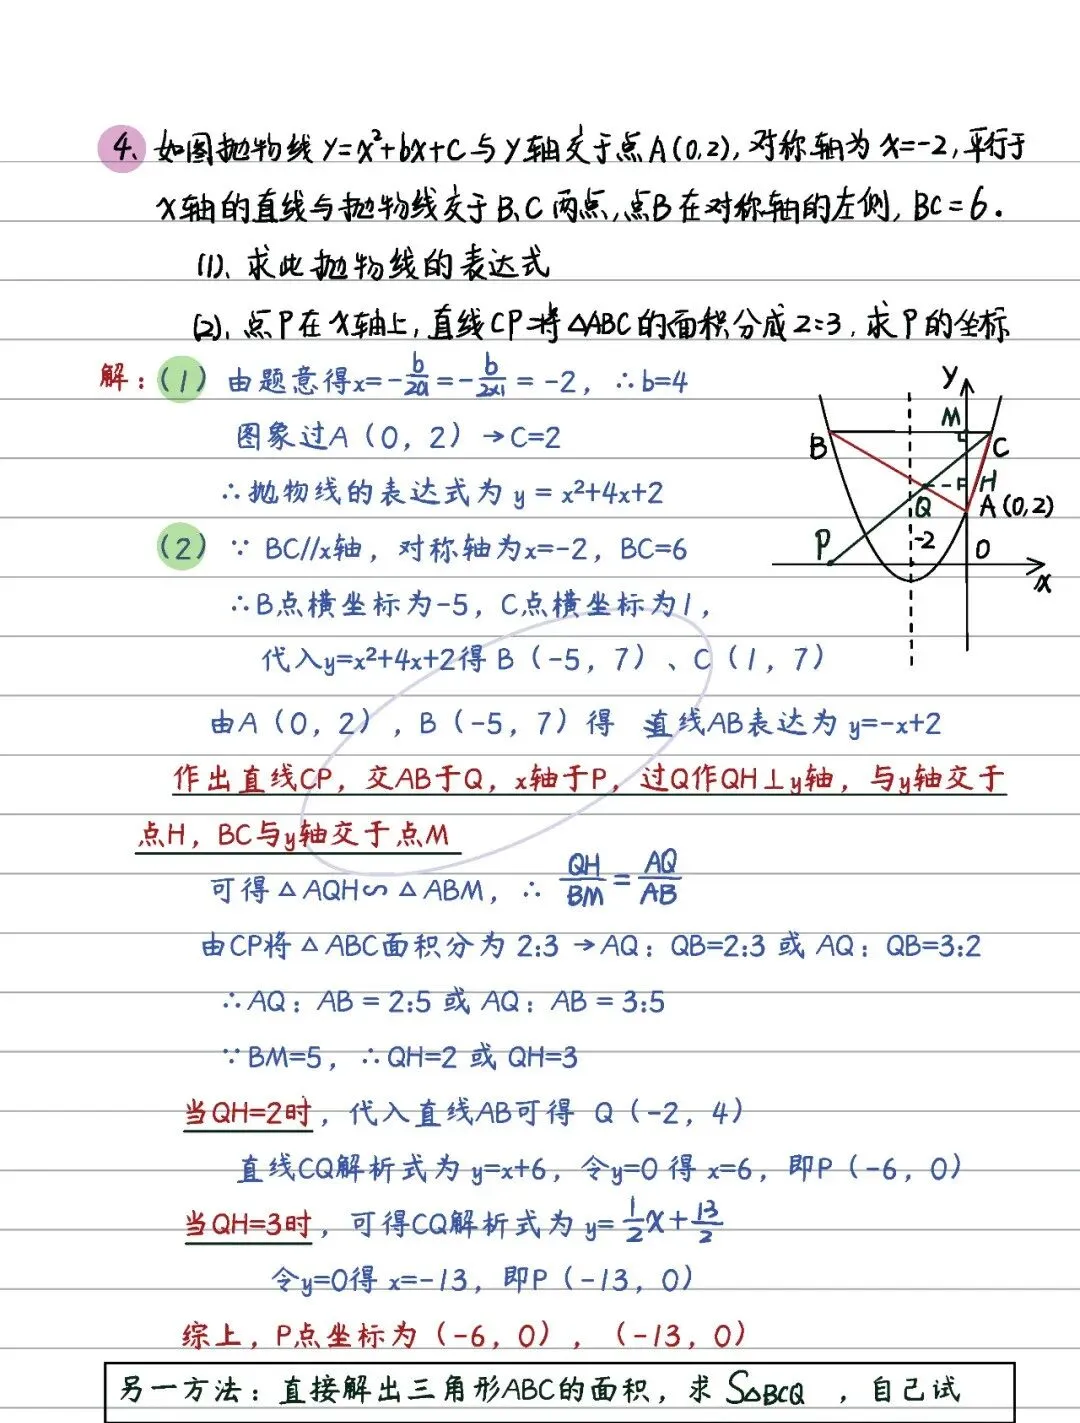 4. 如图抛物线 y=x²+bx+C 与 Y轴交于点A(0,2), 对称轴为 x=-2, 平行于
X轴的直线与抛物线交于B、C两点, 点B在对称轴的左侧, BC=6.
(1)、求此抛物线的表达式
(2)、点P在X轴上, 直线CP将△ABC的面积分成2:3, 求P的坐标
解：(1) 由题意得x=-b/2a=-b/2×1=-2, ∴b=4
图象过A(0, 2)→C=2
∴抛物线的表达式为 y = x²+4x+2
(2) ∵ BC//x轴, 对称轴为x=-2, BC=6
∴B点横坐标为-5, C点横坐标为1,
代入y=x²+4x+2得 B(-5, 7)、C(1, 7)
由A(0, 2), B(-5, 7)得 直线AB表达为 y=-x+2
作出直线CP, 交AB于Q, x轴于P, 过Q作QH⊥y轴, 与y轴交于
点H, BC与y轴交于点M
可得△AQH∽△ABM, ∴ QH/BM=AQ/AB
由CP将△ABC面积分为 2:3 →AQ: QB=2:3 或 AQ: QB=3:2
∴AQ: AB = 2:5 或 AQ: AB = 3:5
∵BM=5, ∴QH=2 或 QH=3
当QH=2时, 代入直线AB可得 Q(-2, 4)
直线CQ解析式为 y=x+6, 令y=0 得 x=6, 即P(-6, 0)
当QH=3时, 可得CQ解析式为 y=1/2x+13/2
令y=0得 x=-13, 即P(-13, 0)
综上, P点坐标为(-6, 0), (-13, 0)
另一方法：直接解出三角形ABC的面积, 求 S△BCQ , 自己试
y
M
B
C
H
Q
A(0,2)
P
-2
O
x